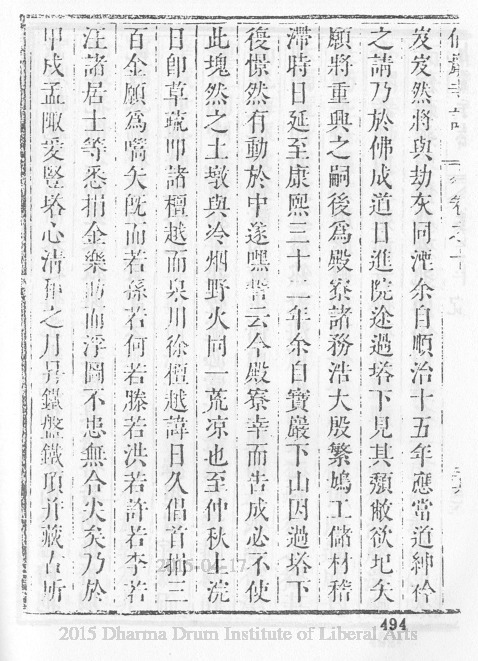 岌岌然將與劫灰同湮余自順治十五年應當道紳衿
之請乃於佛成道日進院途過塔下見其頹敝欲圮矣
願將重興之嗣後為殿寮諸務浩大殷繁鳩工儲材稽
滯時日延至康熙三十二年余自寶嚴下山因過塔下
復憬然有動於中遂嘿誓云今殿寮幸而告成必不使
此塊然之土墩與冷烟野火同一荒凉也至仲秋上浣
日即草疏叩諸檀越而泉川徐檀越諱日久倡首捐三
百金願為嚆矢既而若孫若何若滕若洪若許若李若
汪諸居士等悉捐金樂助而浮圖不患無合尖矣乃於
甲戌孟陬爰豎塔心清和之月另鑄盤鐵頂并蔵古所
494
2015-04-17
2015 Dharma Drum Institute of Liberal Arts